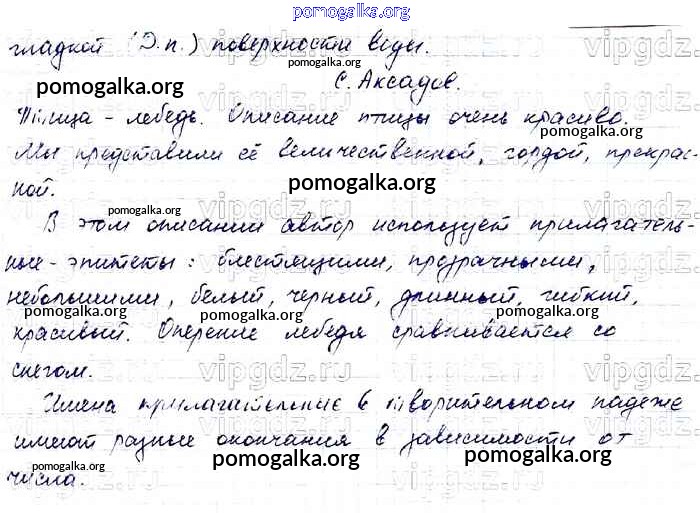 pomogalka.org
гладкой (Д.п.) поверхности воды.
pomogalka.org
С. Аксадов.
pomogalka.org
Птица - лебедь. Описание птицы очень красиво.
pomogalka.org
Мы представили её величественной, гордой, прекрас-
ной.
pomogalka.org
pomogalka.org
В этом описании автор использует прилагатель-
ные - эпитеты: блестящими, прозрачными,
pomogalka.org
небольшими, белый, черный, длинный, гибкий,
pomogalka.org pomogalka.org pomogalka.org
красивый. Оперение лебедя сравнивается со
снегом.
Имена прилагательные в творительном падеже
имеют разные окончания в зависимости от
pomogalka.org pomogalka.org pomogalka.org
числа.
vipgdz.ru